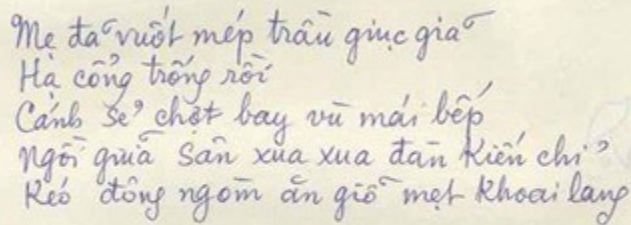 Mẹ đã vuốt mép trầu giục giã
Hạ cổng trống rồi
Cánh sẻ chợt bay vù mái bếp
Ngồi giữa sân xua xua đàn kiến chỉ
Kéo đồng ngoằm ăn giỗ mẹt khoai lang